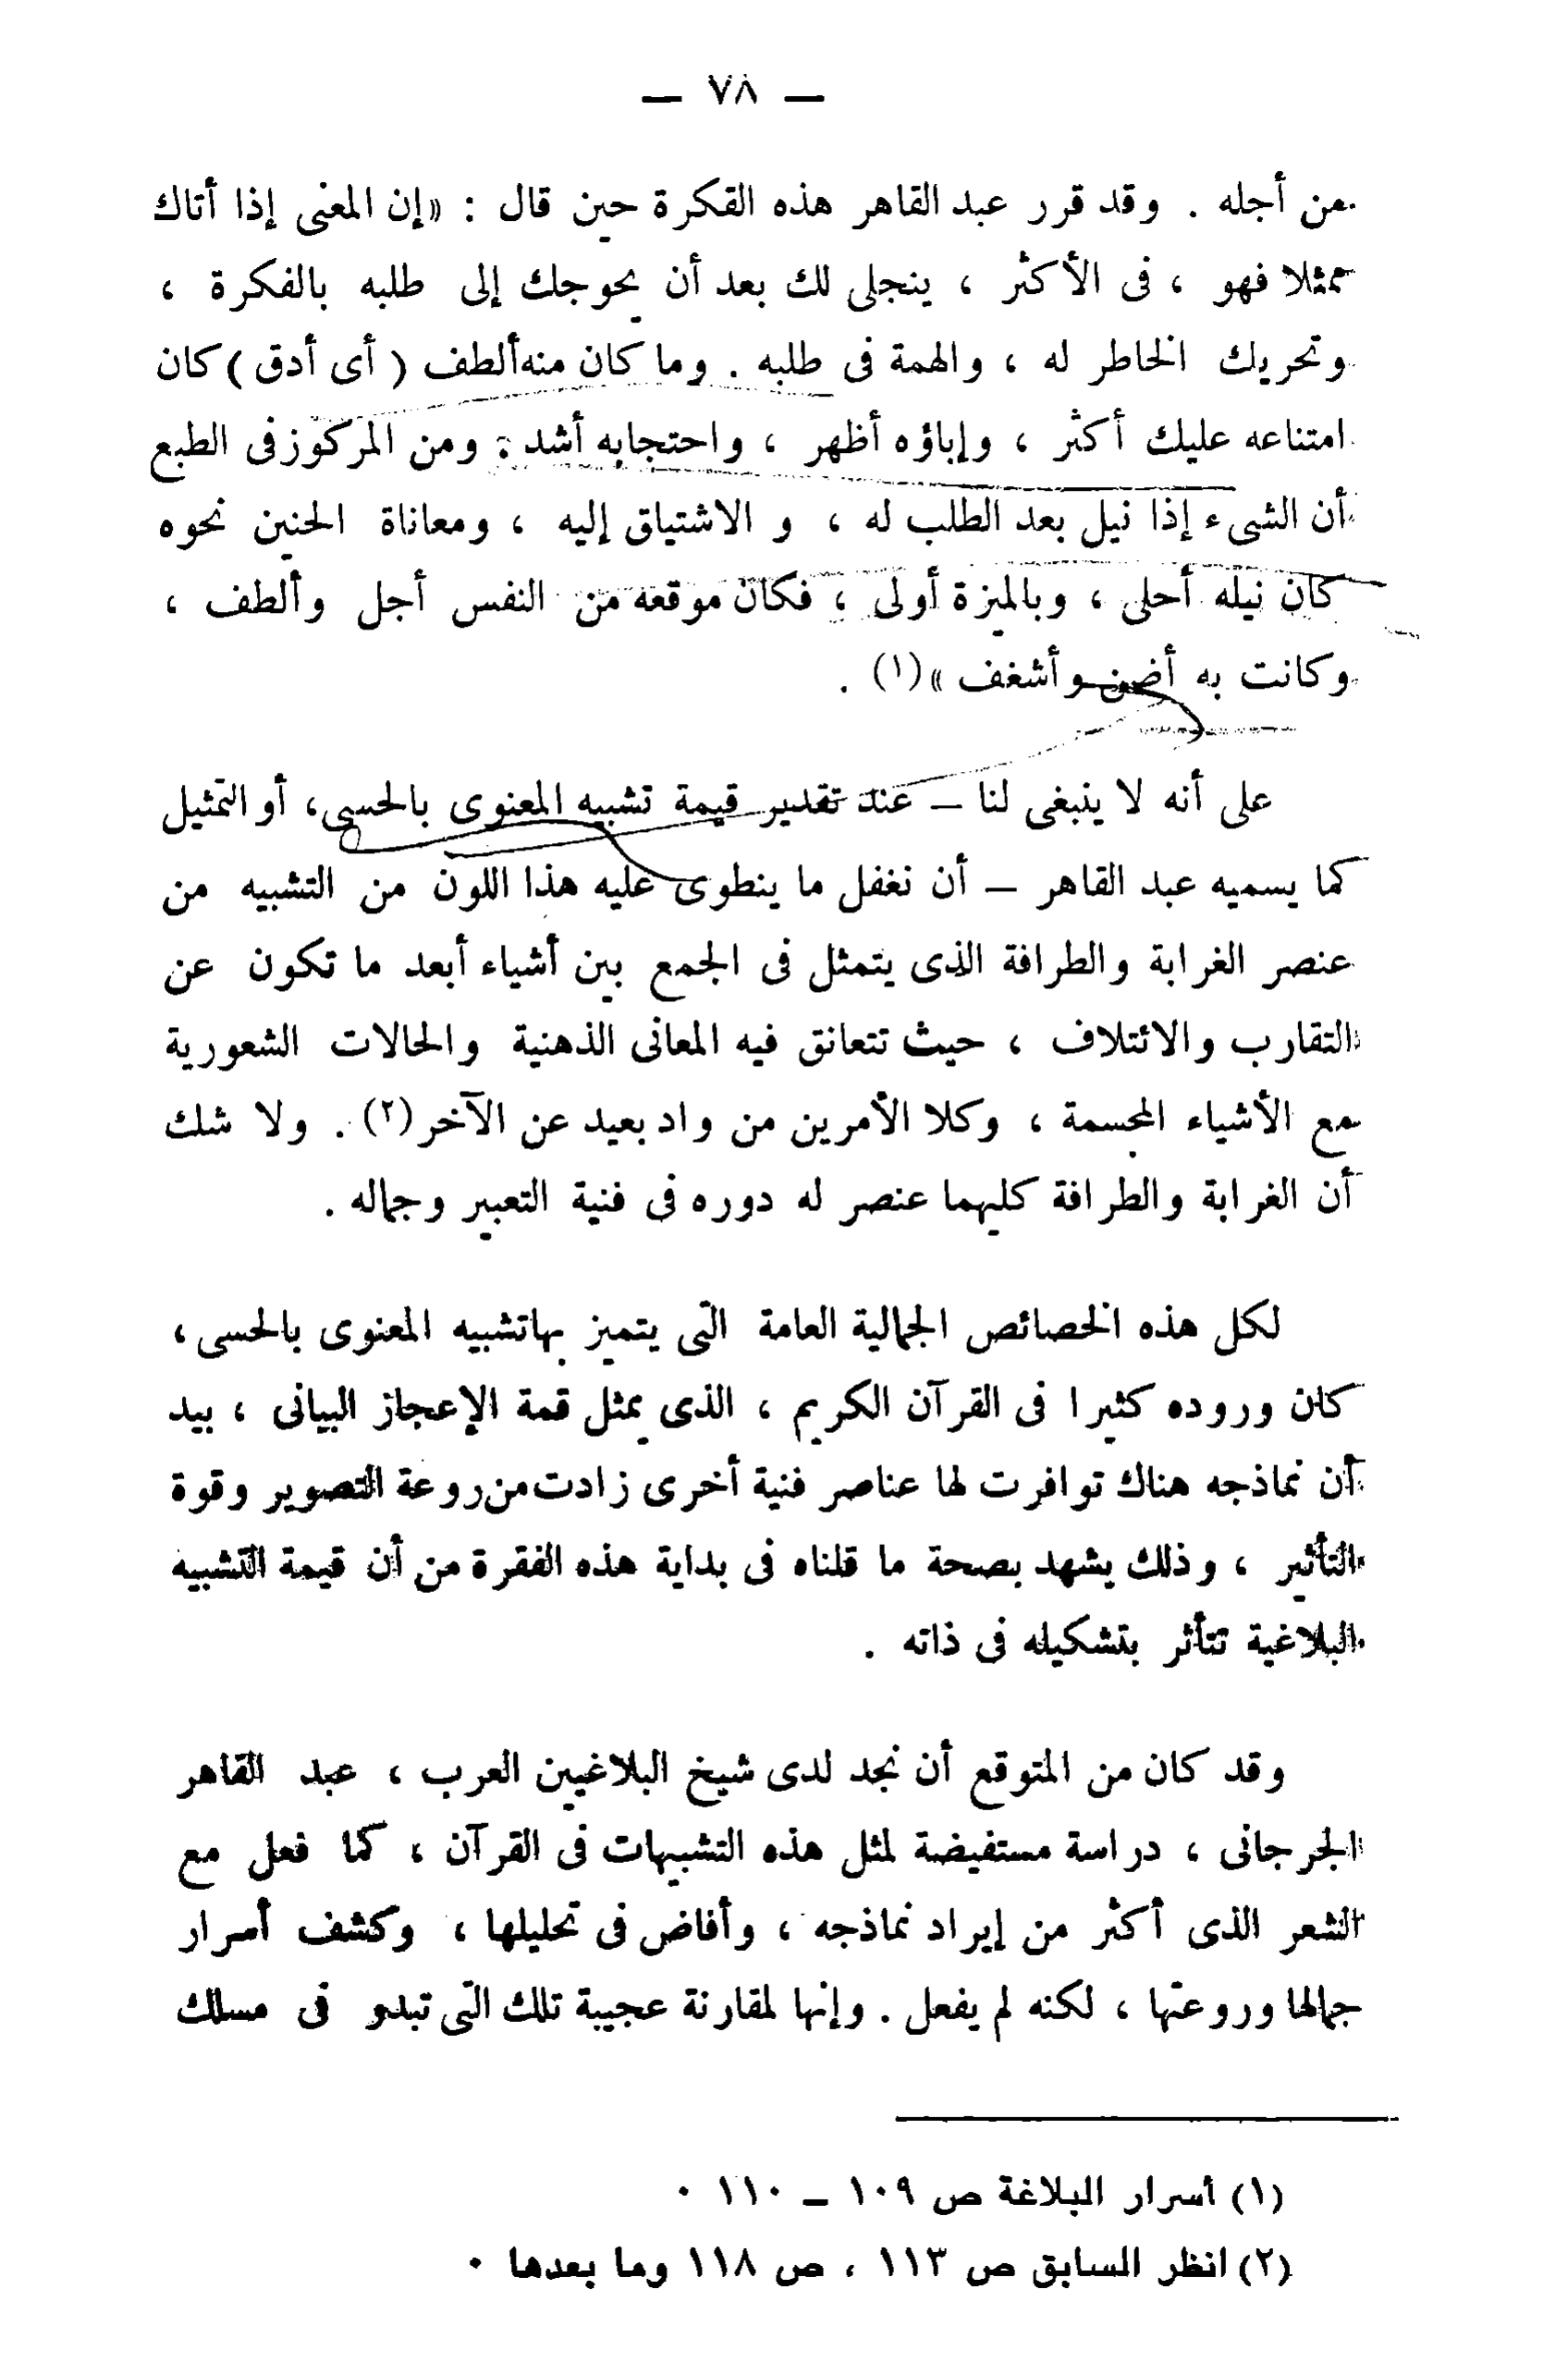 — ٧٨ —
من أجله . وقد قرر عبد القاهر هذه الفكرة حين قال : «إن المعنى إذا أتاك
ممثلا فهو ، فى الأكثر ، ينجلى لك بعد أن يحوجك إلى طلبه بالفكرة ،
وتحريك الخاطر له ، والهمة فى طلبه . وما كان منه ألطف ( أى أدق ) كان
امتناعه عليك أكثر ، وإباؤه أظهر ، واحتجابه أشد : ومن المركوز فى الطبع
أن الشىء إذا نيل بعد الطلب له ، و الاشتياق إليه ، ومعاناة الحنين نحوه
كان نيله أحلى ، وبالميزة أولى ، فكان موقعه من النفس أجل وألطف ،
وكانت به أضن وأشغف »(١) .
على أنه لا ينبغى لنا – عند تقدير قيمة تشبيه المعنوى بالحسى، أو التمثيل
كما يسميه عبد القاهر – أن نغفل ما ينطوى عليه هذا اللون من التشبيه من
عنصر الغرابة والطرافة الذى يتمثل فى الجمع بين أشياء أبعد ما تكون عن
التقارب والائتلاف ، حيث تتعانق فيه المعانى الذهنية والحالات الشعورية
مع الأشياء المجسمة ، وكلا الأمرين من واد بعيد عن الآخر(٢) . ولا شك
أن الغرابة والطرافة كليهما عنصر له دوره فى فنية التعبير وجماله .
لكل هذه الخصائص الجمالية العامة التى يتميز بها تشبيه المعنوى بالحسى ،
كان وروده كثيرا فى القرآن الكريم ، الذى يمثل قمة الإعجاز البيانى ، بيد
أن نماذجه هناك توافرت لها عناصر فنية أخرى زادت من روعة التصوير وقوة
التأثير ، وذلك يشهد بصحة ما قلناه فى بداية هذه الفقرة من أن قيمة التشبيه
البلاغية تتأثر بتشكيله فى ذاته .
وقد كان من المتوقع أن نجد لدى شيخ البلاغيين العرب ، عبد القاهر
الجرجانى ، دراسة مستفيضة لمثل هذه التشبيهات فى القرآن ، كما فعل مع
الشعر الذى أكثر من إيراد نماذجه ، وأفاض فى تحليلها ، وكشف أسرار
جمالها وروعتها ، لكنه لم يفعل . وإنها لمقارنة عجيبة تلك التى تبدو فى مسلك
(١) أسرار البلاغة ص ١٠٩ – ١١٠ .
(٢) انظر السابق ص ١١٣ ، ص ١١٨ وما بعدها .